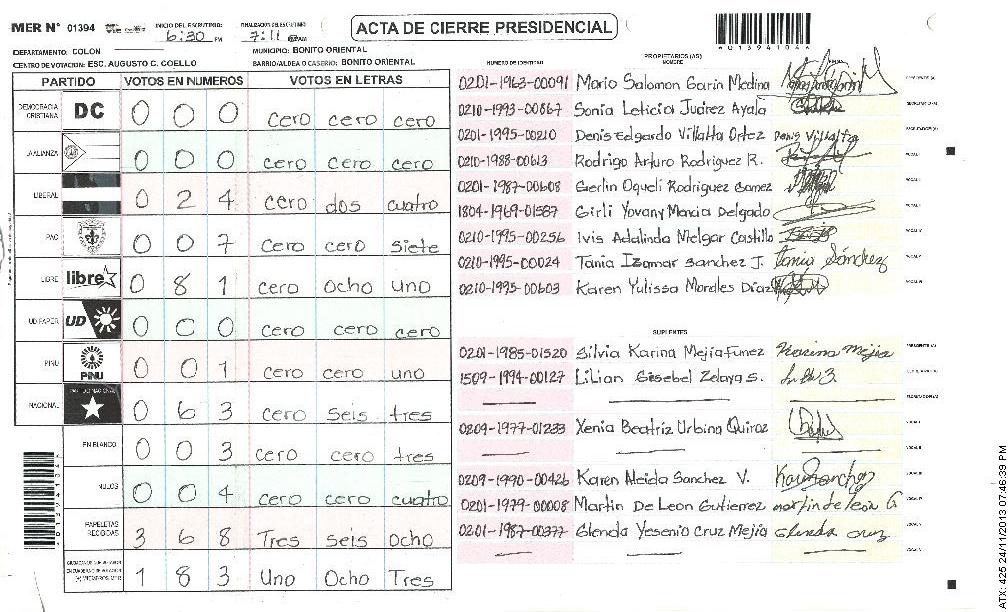 MER N° 01394
INICIO DEL ESCRUTINIO: 6:30 PM
7:11
ACTA DE CIERRE PRESIDENCIAL
DEPARTAMENTO: COLON
MUNICIPIO: BONITO ORIENTAL
CENTRO DE VOTACION: ESC. AUGUSTO C. COELLO
BARRIO/ALDEA O CASERIO: BONITO ORIENTAL
PARTIDO VOTOS EN NUMEROS VOTOS EN LETRAS
DEMOCRACIA CRISTIANA DC 0 0 0 cero cero cero
LA ALIANZA 0 0 0 cero cero cero
LIBERAL 0 2 4 cero dos cuatro
PAC 0 0 7 cero cero siete
LIBRE libre 0 8 1 cero ocho uno
UD FAPER UD 0 0 0 cero cero cero
PINU PINU 0 0 1 cero cero uno
NACIONAL 0 6 3 cero seis tres
EN BLANCO 0 0 3 cero cero tres
NULOS 0 0 4 cero cero cuatro
PAPELETAS RECIBIDAS 3 6 8 Tres seis ocho
1 8 3 Uno Ocho Tres
NUMERO DE IDENTIDAD
PROPIETARIOS (AS)
NOMBRE
0201-1963-00091 Mario Salomon Garin Medina
0210-1993-00867 Sonia Leticia Juárez Ayala
0201-1995-00210 Denis Edgardo Villalta Ortez Denis Villalta
0210-1988-00613 Rodrigo Arturo Rodriguez R.
0201-1987-00608 Gerlin Oqueli Rodriguez Gomez
1804-1969-01587 Girli Yovany Mencia Delgado
0210-1995-00256 Ivis Adalinda Melgar Castillo
0210-1995-00024 Tania Izamar Sanchez J. Tania Sánchez
0210-1995-00603 Karen Yulissa Morales Díaz
SUPLENTES
0201-1985-01520 Silvia Karina Mejía Funez Karina Mejia
1509-1994-00127 Lilian Gisebel Zelaya S.
0209-1977-01233 Xenia Beatriz Urbina Quiroz
0209-1990-00426 Karen Neida Sanchez V.
0201-1979-00008 Martin De Leon Gutierrez martin de leon G
0201-1987-00377 Glenda Yesenia Cruz Mejía Glenda cruz
ATX: 425 24/11/2013 07:46:39 PM